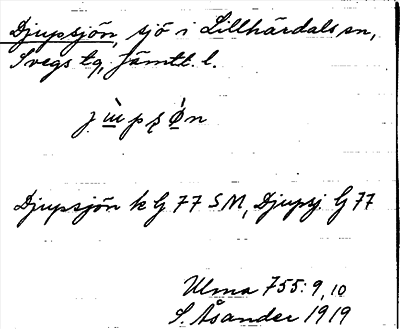 Djupsjön, sjö i Lillhärdals sn,
Svegs tg, Jämtl. l.
Djupsjön k G 77 SM, Djupsj. G 77
Ulma 755: 9, 10
S. Åsander 1919